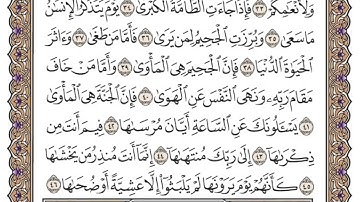 وَلِأَنْعَٰمِكُمْ ٣٣ فَإِذَا جَآءَتِ ٱلطَّآمَّةُ ٱلْكُبْرَىٰ ٣٤ يَوْمَ يَتَذَكَّرُ ٱلْإِنسَٰنُ
مَا سَعَىٰ ٣٥ وَبُرِّزَتِ ٱلْجَحِيمُ لِمَن يَرَىٰ ٣٦ فَأَمَّا مَن طَغَىٰ ٣٧ وَءَاثَرَ
ٱلْحَيَوٰةَ ٱلدُّنْيَا ٣٨ فَإِنَّ ٱلْجَحِيمَ هِىَ ٱلْمَأْوَىٰ ٣٩ وَأَمَّا مَنْ خَافَ
مَقَامَ رَبِّهِۦ وَنَهَى ٱلنَّفْسَ عَنِ ٱلْهَوَىٰ ٤٠ فَإِنَّ ٱلْجَنَّةَ هِىَ ٱلْمَأْوَىٰ
٤١ يَسْـَٔلُونَكَ عَنِ ٱلسَّاعَةِ أَيَّانَ مُرْسَىٰهَا ٤٢ فِيمَ أَنتَ مِن
ذِكْرَىٰهَآ ٤٣ إِلَىٰ رَبِّكَ مُنتَهَىٰهَآ ٤٤ إِنَّمَآ أَنتَ مُنذِرُ مَن يَخْشَىٰهَا
٤٥ كَأَنَّهُمْ يَوْمَ يَرَوْنَهَا لَمْ يَلْبَثُوٓا۟ إِلَّا عَشِيَّةً أَوْ ضُحَىٰهَا ٤٦